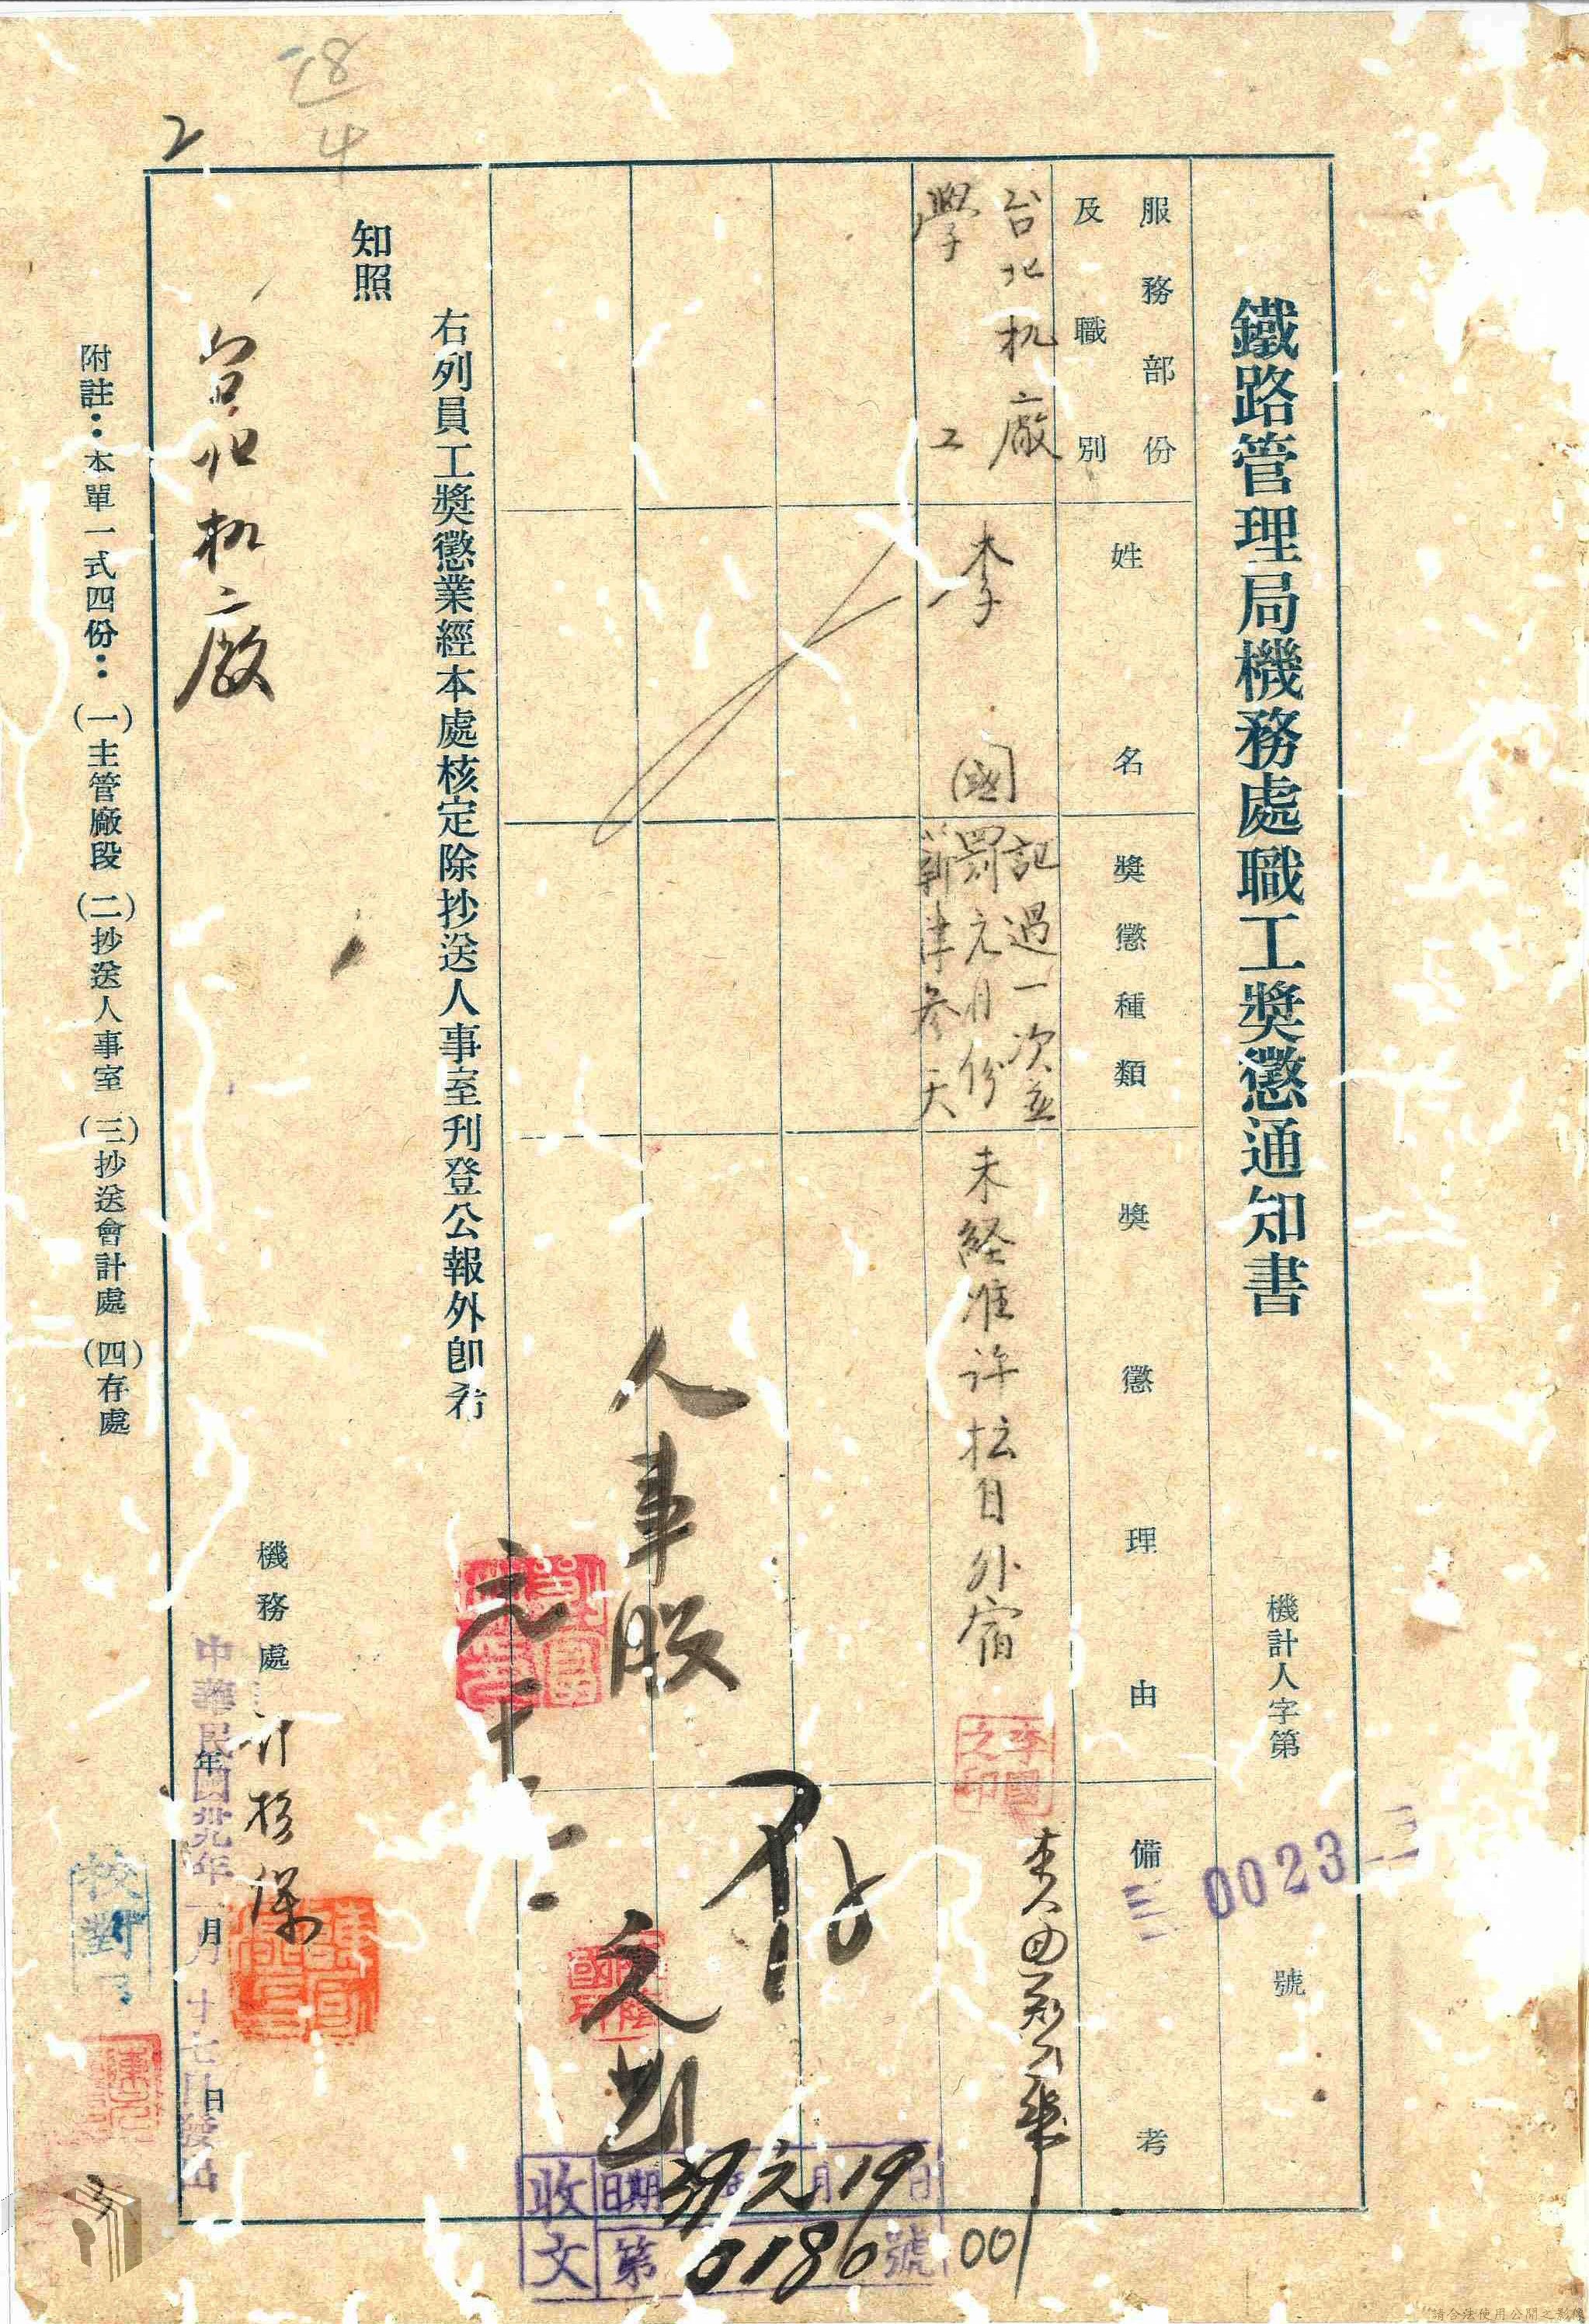 鐵路管理局機務處職工獎懲通知書
機計人字第
0023
號
服務部份
及職別
姓名
獎懲種類
獎懲理由
備考
台北机廠
學工
李國
記過一次並
罰元月份
薪津叁天
未経准許松日外宿
李國
之印
人事股
存
元
右列員工獎懲業經本處核定除抄送人事室刊登公報外卽希
知照
台北机廠
機務處
年月日
中華民國卅九年一月十七日發出
附註：本單一式四份：(一)主管廠段(二)抄送人事室(三)抄送會計處(四)存處
校對
收文
日期39年元月19日
第0180號
001
2
18
4
請合法使用公開之影像